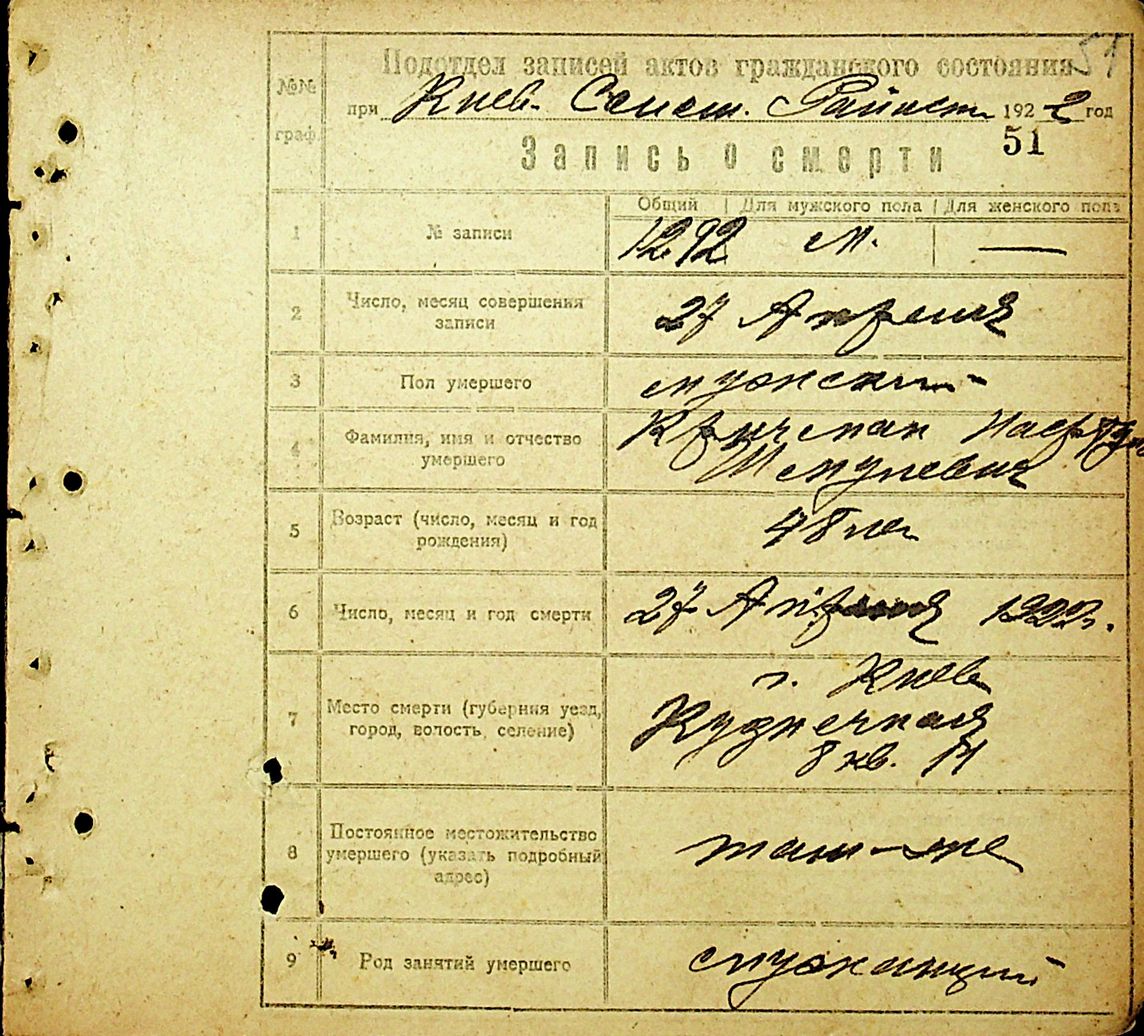 Подотдел записей актов гражданского состояния 51
№№ граф.
при Киев. Совет. 192 2 год
51
Запись о смерти
Общий | Для мужского пола | Для женского пола
1 № записи 1292 м. —
2 Число, месяц совершения
записи 27 Апреля
3 Пол умершего мужской
4 Фамилия, имя и отчество
умершего Кричман
Шмулевич
5 Возраст (число, месяц и год
рождения) 48 лет
6 Число, месяц и год смерти 27 Апреля 1922 г.
7 Место смерти (губерния уезд,
город, волость, селение) г. Киев
Кузнечная
8 кв. 14
8 Постоянное местожительство
умершего (указать подробный
адрес) там-же
9 Род занятий умершего служащий